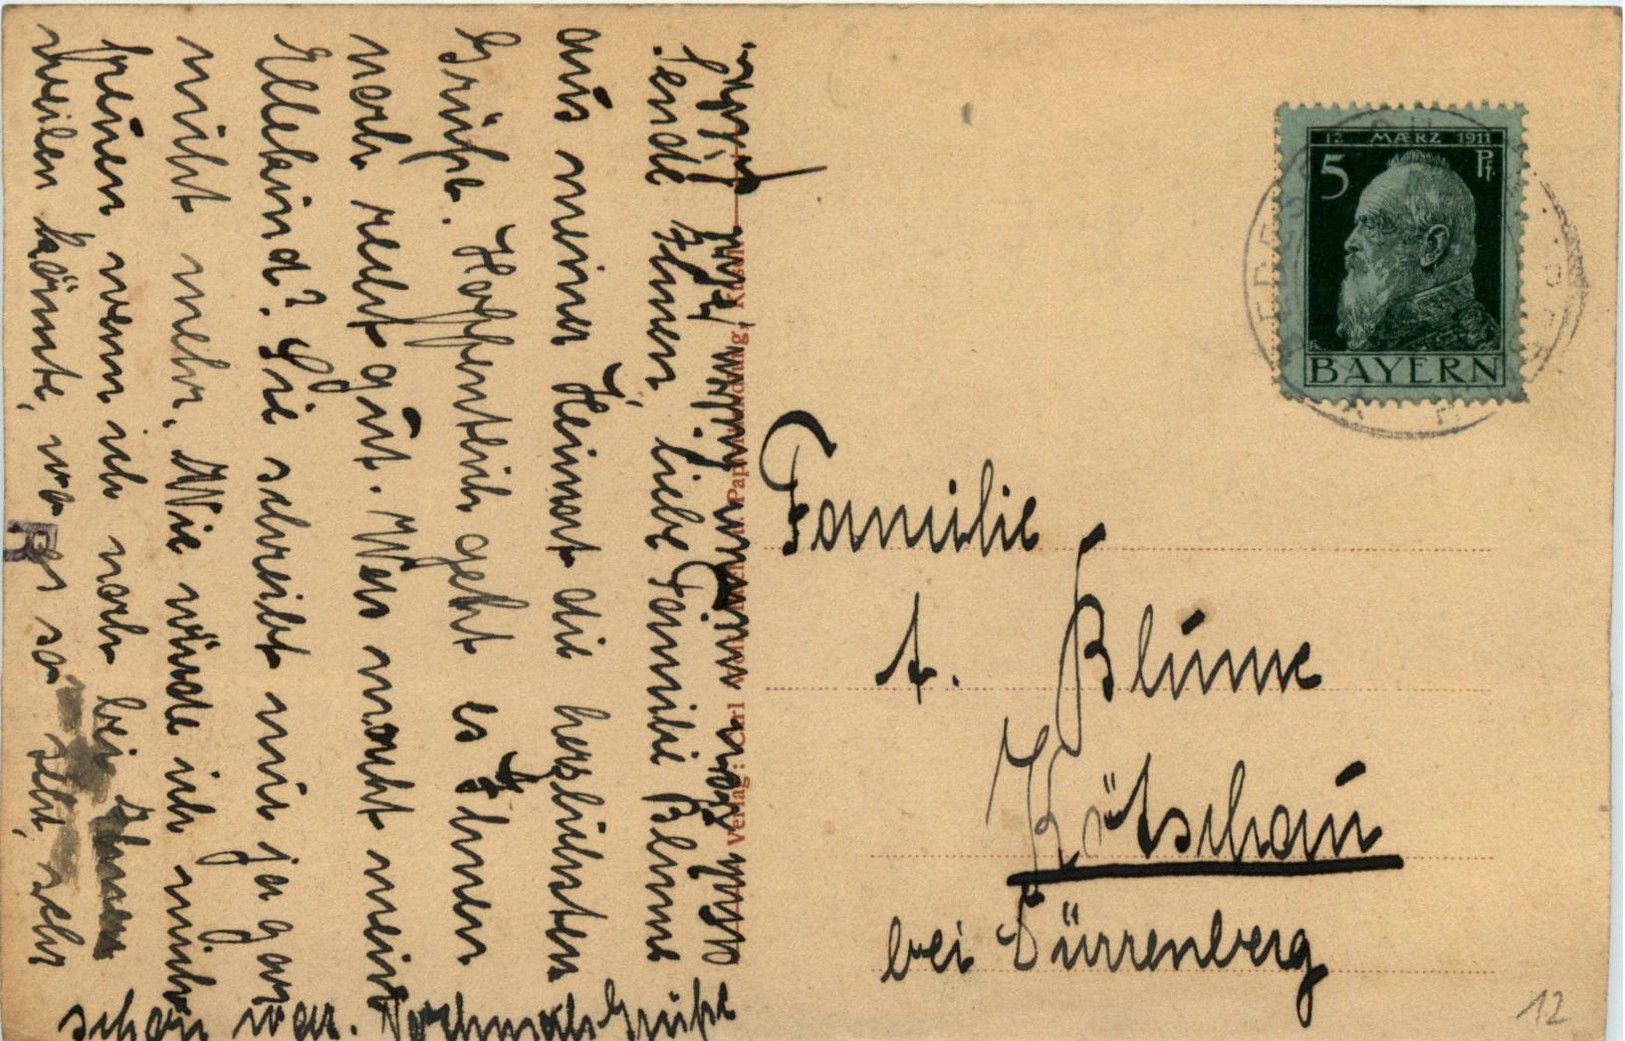 Sende Ihnen, liebe Familie Blume
aus meiner Heimat die herzlichsten
Grüße. Hoffentlich geht es Ihnen
noch recht gut. Was macht mein
Ellekind? Sie schreibt mir ja gar
nicht mehr. Wie würde ich mich
freuen wenn ich noch bei Ihnen
weilen könnte, wo es so sehr, sehr
schön war. Nochmals Grüße
auch von meinen lieben
Verlag: Carl Papierhandlung,
12. MÆRZ 1911
5 Pf.
BAYERN
Familie
A. Blume
Kötschau
bei Dürrenberg
12